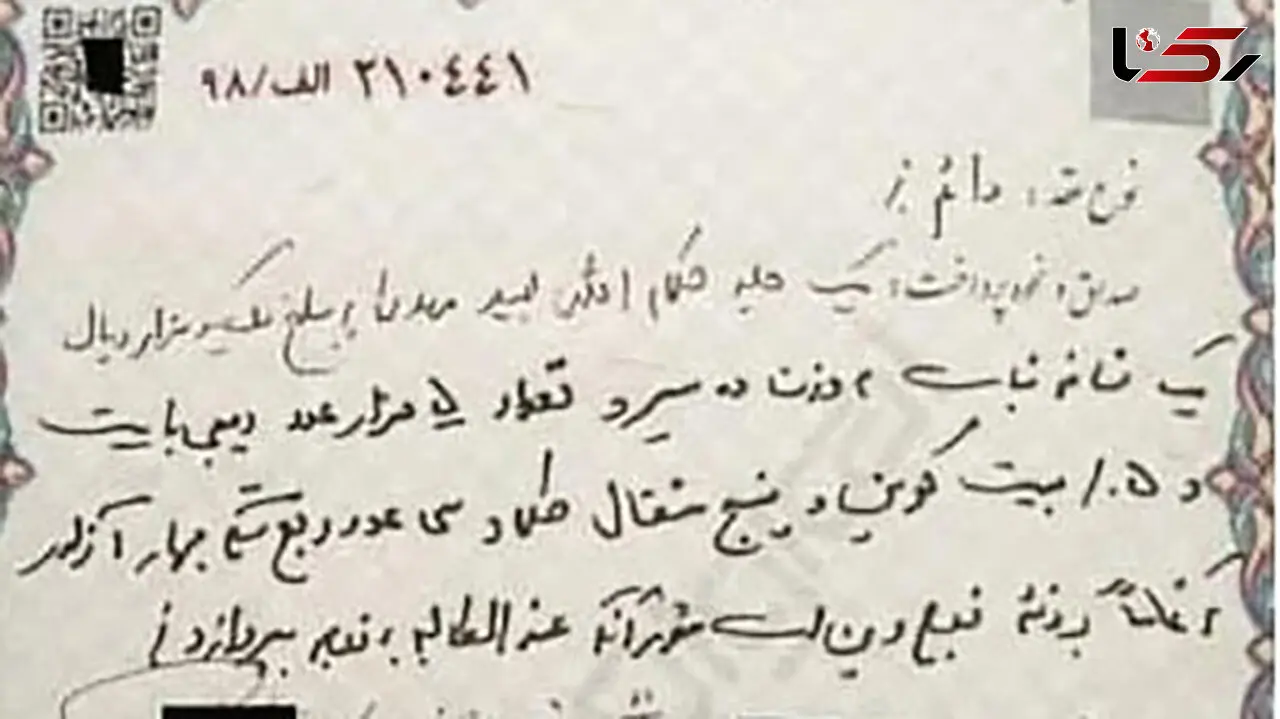 رکنا
۲۱۰۴۴۱ الف/۹۸
نوع عقد: دائم
صداق و نحوه پرداخت: یک جلد کلام الله مجید هدیه به مبلغ یکصد هزار ریال
یک شاخه نبات به وزن ده سیر و تعداد ۵ هزار عدد دیجی بایت
و ۰.۵ / بیت کوین و پنج مثقال طلا و سی عدد ربع سکه بهار آزادی
تماماً بر ذمه زوج دین است که عندالمطالبه به زوجه بپردازد